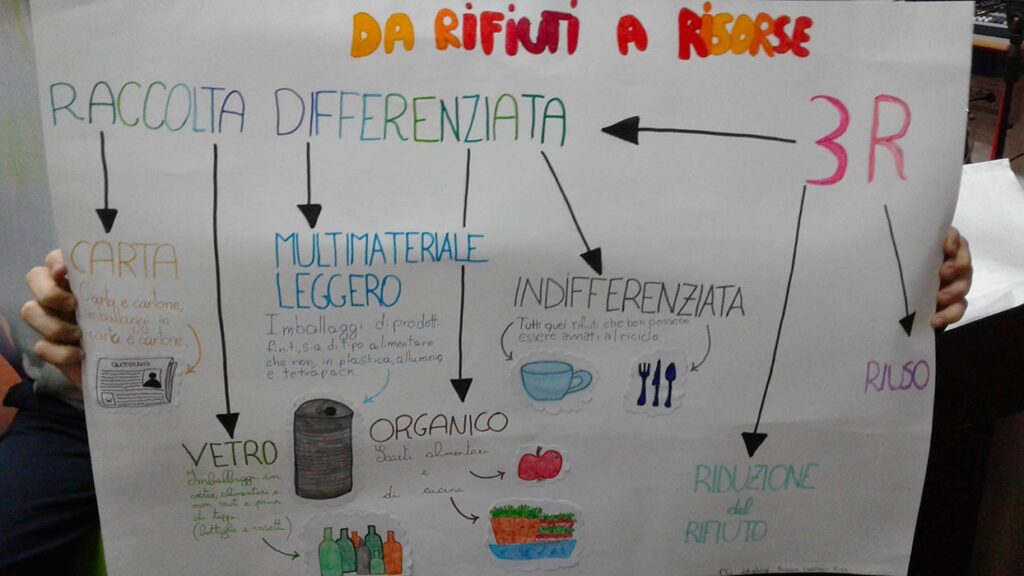 DA RIFIUTI A RISORSE
RACCOLTA DIFFERENZIATA
3R
CARTA
Carta e cartone,
imballaggi in
carta e cartone.
QUOTIDIANO
MULTIMATERIALE
LEGGERO
Imballaggi di prodotti
finiti, sia di tipo alimentare
che non, in plastica, allumnio
e tetrapack.
INDIFFERENZIATA
Tutti quei rifiuti che non possono
essere avviati al riciclo.
RIUSO
VETRO
Imballaggi in
vetro, alimentari e
non, privi
di tappi
(bottiglie e vasetti)
ORGANICO
Scarti alimentari
e
di cucina
RIDUZIONE
del
RIFIUTO